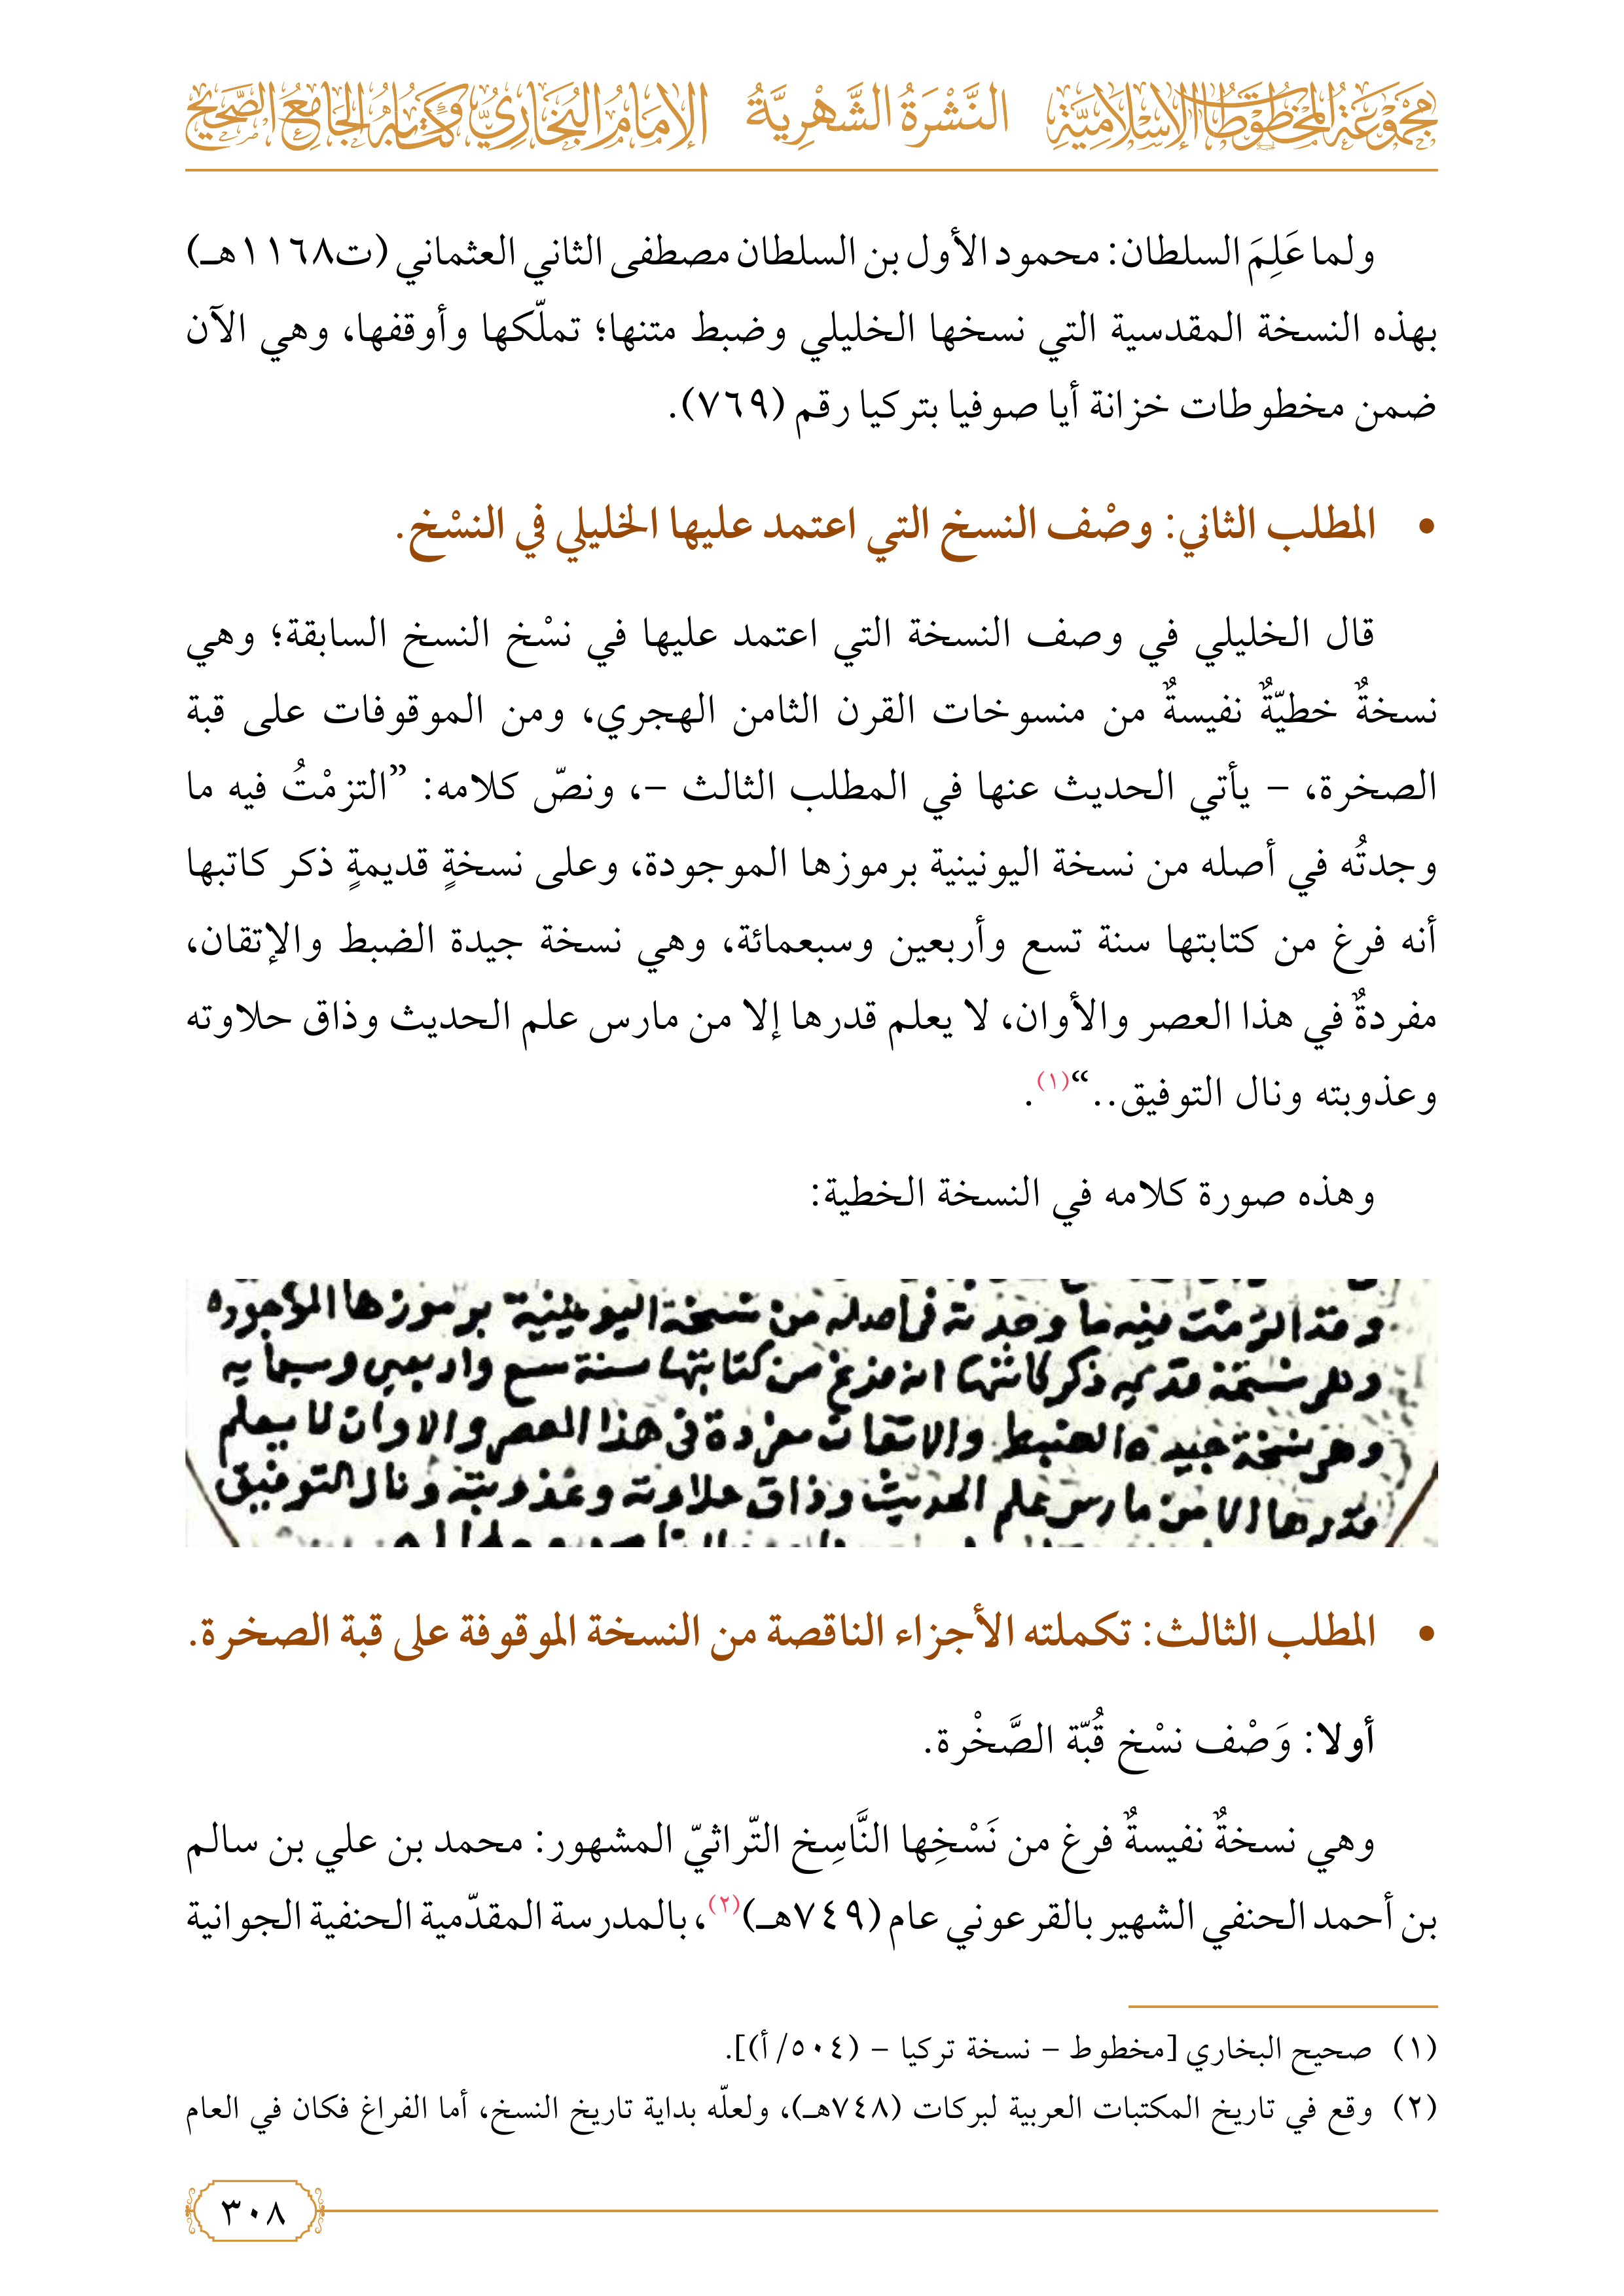 مَجْمُوعَةُ المَخْطُوطَاتِ الإِسْلَامِيَّةِ النَّشْرَةُ الشَّهْرِيَّةُ الإِمَامُ البُخَارِيُّ وَكِتَابُهُ الجَامِعُ الصَّحِيحُ
ولما عَلِمَ السلطان: محمود الأول بن السلطان مصطفى الثاني العثماني (ت١١٦٨هـ)
بهذه النسخة المقدسية التي نسخها الخليلي وضبط متنها؛ تملّكها وأوقفها، وهي الآن
ضمن مخطوطات خزانة أيا صوفيا بتركيا رقم (٧٦٩).
• المطلب الثاني: وصْف النسخ التي اعتمد عليها الخليلي في النسْخ.
قال الخليلي في وصف النسخة التي اعتمد عليها في نسْخ النسخ السابقة؛ وهي
نسخةٌ خطيّةٌ نفيسةٌ من منسوخات القرن الثامن الهجري، ومن الموقوفات على قبة
الصخرة، – يأتي الحديث عنها في المطلب الثالث –، ونصّ كلامه: ”التزمْتُ فيه ما
وجدتُه في أصله من نسخة اليونينية برموزها الموجودة، وعلى نسخةٍ قديمةٍ ذكر كاتبها
أنه فرغ من كتابتها سنة تسع وأربعين وسبعمائة، وهي نسخة جيدة الضبط والإتقان،
مفردةٌ في هذا العصر والأوان، لا يعلم قدرها إلا من مارس علم الحديث وذاق حلاوته
وعذوبته ونال التوفيق..“(١).
وهذه صورة كلامه في النسخة الخطية:
وقد التزمت فيه ما وجدته في اصله من نسخة اليونينية برموزها الموجوده
وعلى نسخة قديمه ذكر كاتبها انه فرغ من كتابتها سنة تسع واربعين وسبعمايه
وهي نسخة جيده الضبط والاتقان مفردة في هذا العصر والاوان لا يعلم
قدرها الا من مارس علم الحديث وذاق حلاوته وعذوبته ونال التوفيق
• المطلب الثالث: تكملته الأجزاء الناقصة من النسخة الموقوفة على قبة الصخرة.
أولا: وَصْف نسْخ قُبّة الصَّخْرة.
وهي نسخةٌ نفيسةٌ فرغ من نَسْخِها النَّاسِخ التّراثيّ المشهور: محمد بن علي بن سالم
بن أحمد الحنفي الشهير بالقرعوني عام (٧٤٩هـ)(٢)، بالمدرسة المقدّمية الحنفية الجوانية
(١) صحيح البخاري [مخطوط – نسخة تركيا – (٥٠٤/ أ)].
(٢) وقع في تاريخ المكتبات العربية لبركات (٧٤٨هـ)، ولعلّه بداية تاريخ النسخ، أما الفراغ فكان في العام
٣٠٨